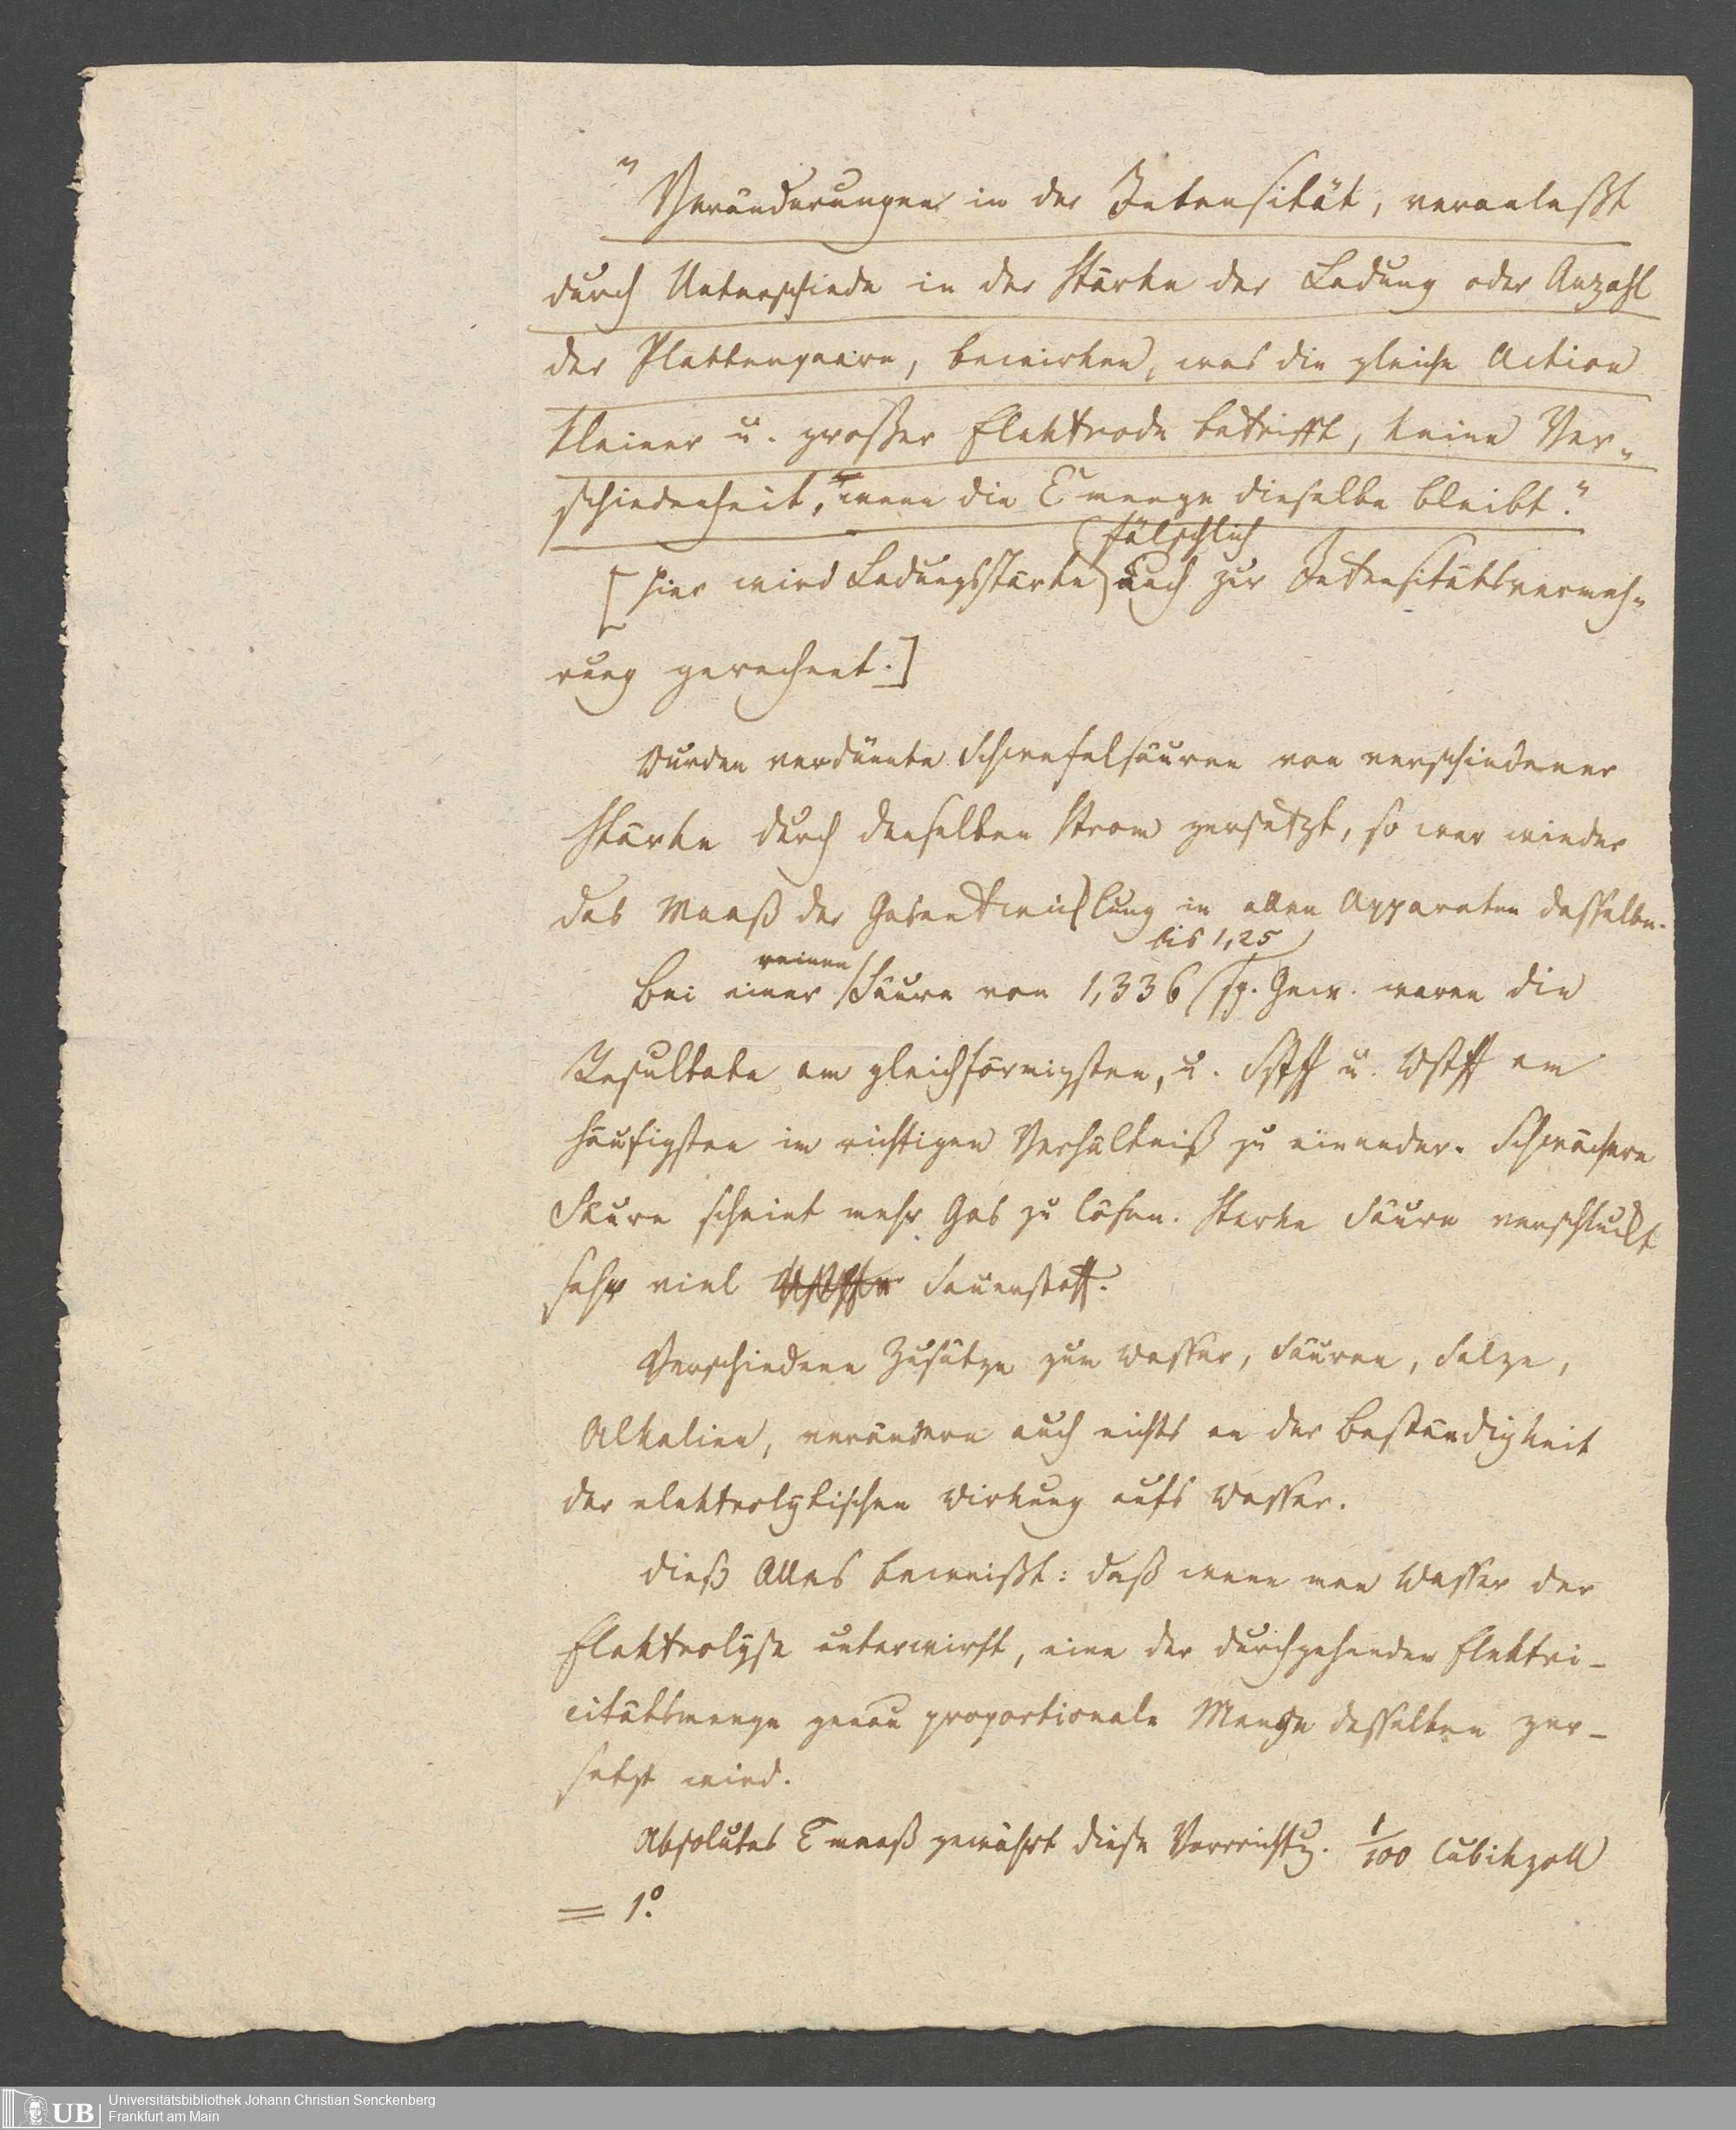 "Veränderungen in der Intensität, veranlaßt
durch Unterschiede in der Stärke der Ladung oder Anzahl
der Plattenpaare, bewirken, was die gleiche Action
kleiner u. großer Elektrode betrifft, keine Ver-
schiedenheit, wenn die E menge dieselbe bleibt."
fälschlich
[Hier wird Ladungsstärke auch zur Intensitätsvermeh-
rung gerechnet.]
Wurden verdünnte Schwefelsäuren von verschiedener
Stärke durch denselben Strom zersetzt, so war wieder
das Maaß der Gasentwicklung in allen Apparaten dasselbe.
bis 1,25
reinen
Bei einer Säure von 1,336 sp. Gew. waren die
Resultate am gleichförmigsten, u. Sstff u. Wstff am
häufigsten im richtigen Verhältniß zu einander. Schwächere
Säure scheint mehr Gas zu lösen. Starke Säure verschluckt
sehr viel Sauerstoff.
Verschiedene Zusätze zum Wasser, Säuren, Salze,
Alkalien, verändern auch nichts an der Beständigkeit
der elektrolytischen Wirkung aufs Wasser.
Dieß Alles beweißt: daß wenn man Wasser der
Elektrolyse unterwirft, eine der durchgehenden Elektri-
citätsmenge genau proportionale Menge desselben zer-
setzt wird.
Absolutes E maaß gewährt diese Vorrichtg. 1/100 Cubikzoll
= 1°.
UB Universitätsbibliothek Johann Christian Senckenberg
Frankfurt am Main